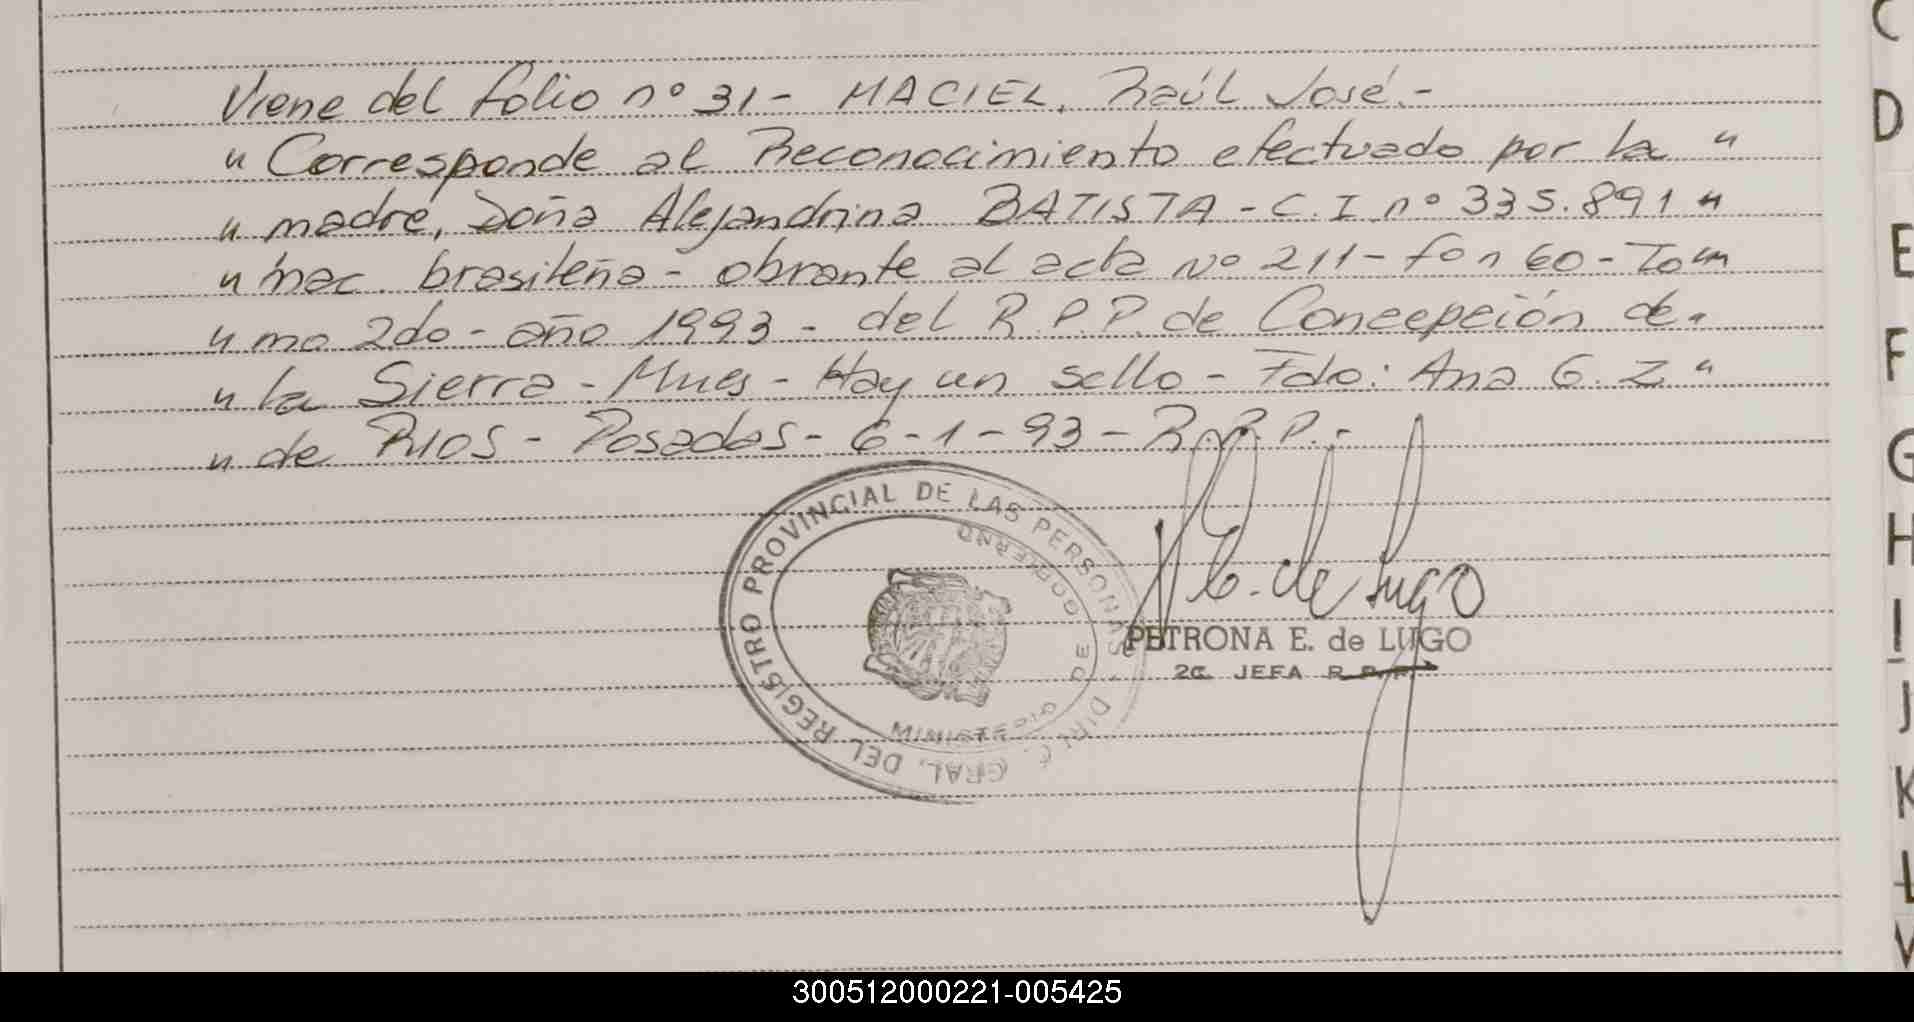 Viene del folio nº 31- MACIEL, Raúl José.-
" Corresponde al Reconocimiento efectuado por la "
" madre, Doña Alejandrina BATISTA - C.I. nº 335.891 "
" nac. brasileña - obrante al acta Nº 211- fº n 60 - To "
" mo 2do - año 1993 - del R.P.P. de Concepción de "
" la Sierra - Mnes - Hay un sello - Fdo: Ana G. Z "
" de RIOS - Posadas - 6-1-93 - R.P.P.-
DIREC. GRAL. DEL REGISTRO PROVINCIAL DE LAS PERSONAS
MINISTERIO DE GOBIERNO
de Lugo
PETRONA E. de LUGO
2a. JEFA R.P.P.
C
D
E
F
G
H
I
J
K
L
300512000221-005425